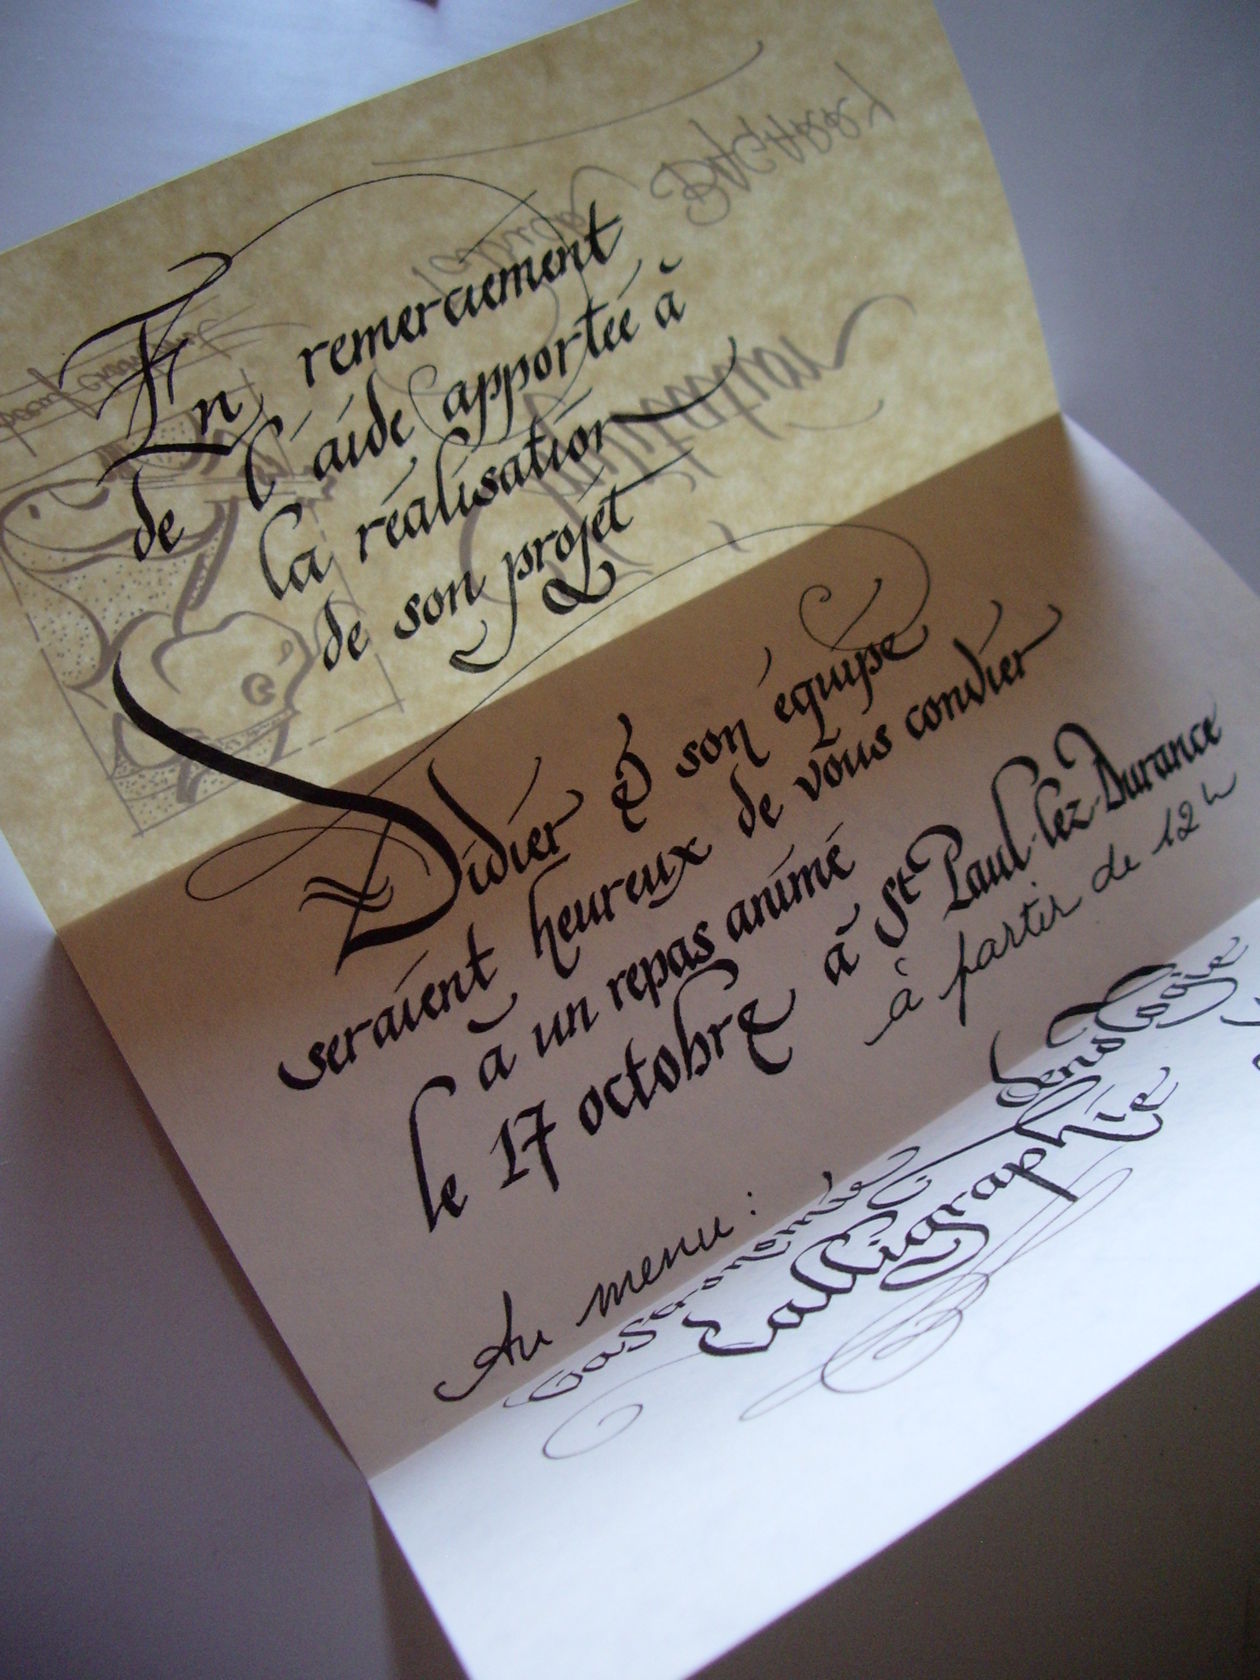 En remerciement
de l'aide apportée à
la réalisation
de son projet
Didier & son équipe
seraient heureux de vous convier
à un repas animé
le 17 octobre à St Paul-lez-Durance
à partir de 12h
Au menu :
Gastronomie
Calligraphie
Invitation
BAGARRY